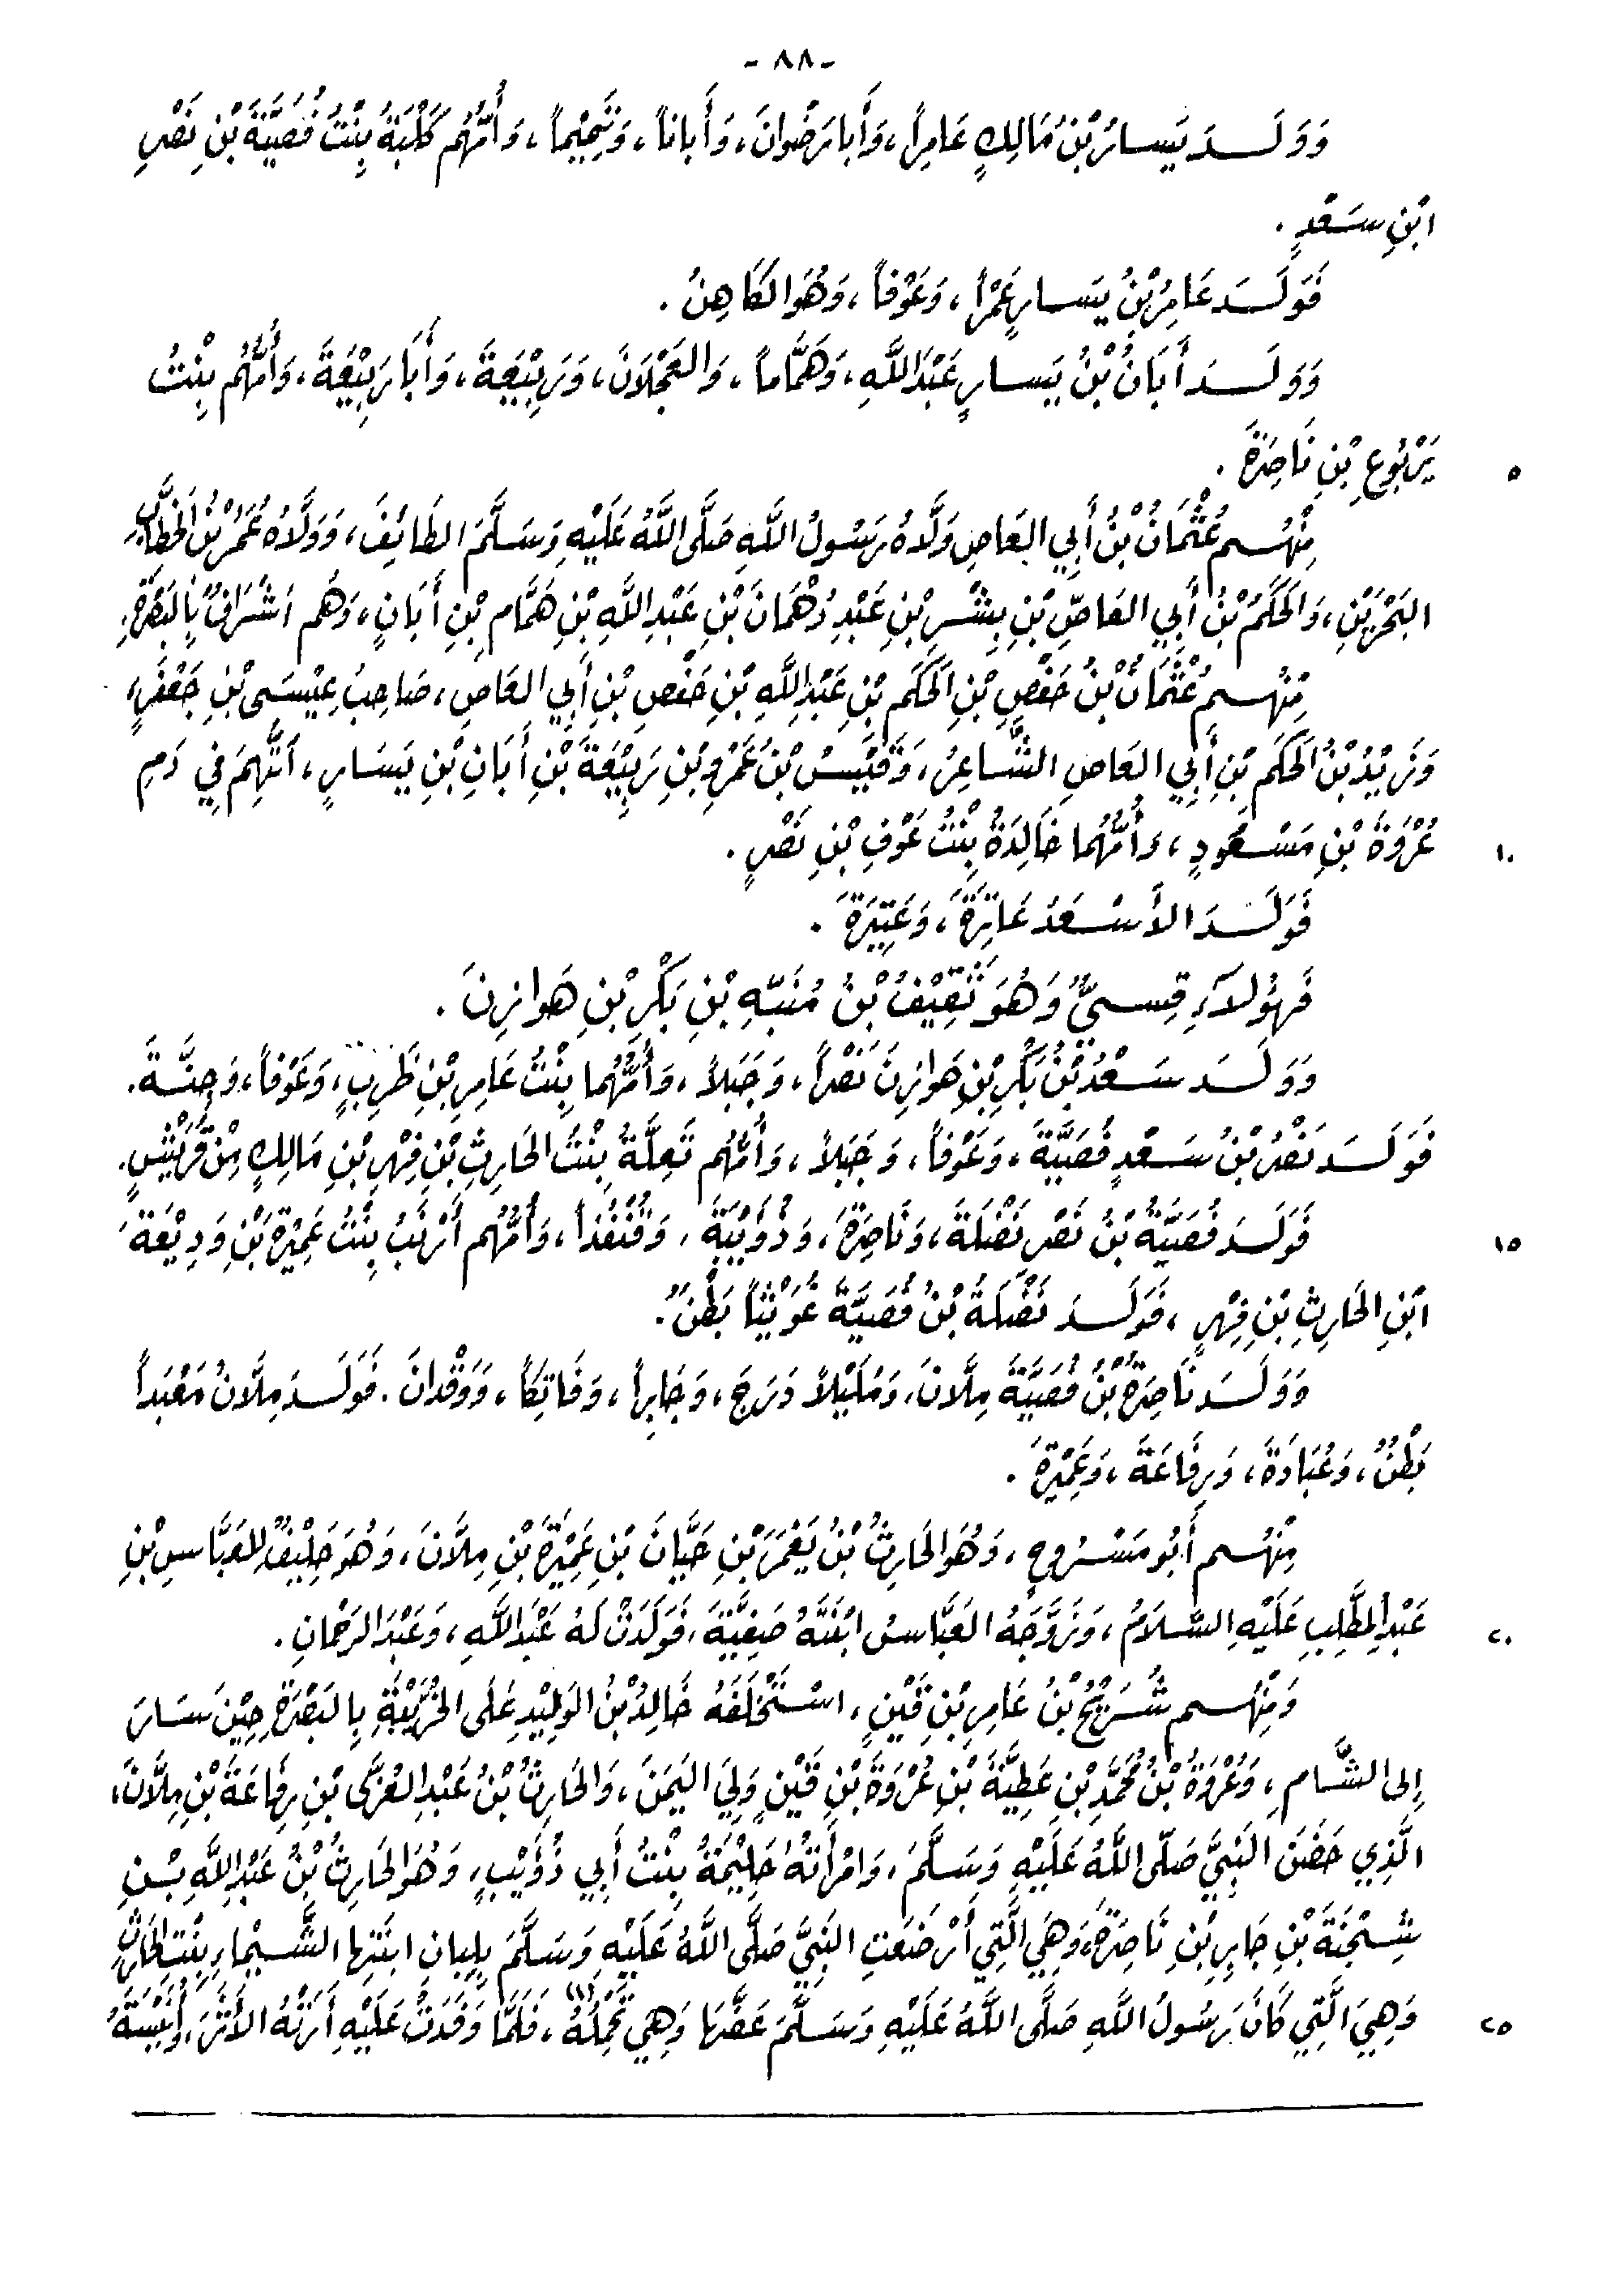 - ٨٨ -
وَوَلَـــدَ يَسارُ بْنُ مَالِكٍ عَامِراً، وَأَبا رَضْوانَ، وَأَباناً، وَتَمِيْماً، وَأُمُّهُم كَلْبَةُ بِنْتُ فُصَيَّةَ بْنِ نَصْرِ
ابْنِ سَعْدٍ.
فَوَلَـــدَ عَامِرُ بْنُ يَسارٍ عَمْراً، وَعَوْفاً، وَهُوَ الكَاهِنُ.
وَوَلَـــدَ أَبَانُ بْنُ يَسارٍ عَبْدَ اللَّهِ، وَهَمَّاماً، وَالعَجْلاَنَ، وَرَبِيْعَةَ، وَأَبَا رَبِيْعَةَ، وَأُمُّهُم بِنْتُ
٥ يَرْبُوعِ بْنِ نَاصِرَةَ.
مِنْهُـــم عُثْمَانُ بْنُ أَبِي العَاصِ وَلَّاهُ رَسُولُ اللَّهِ صَلَّى اللَّهُ عَلَيْهِ وَسَلَّمَ الطَائِفَ، وَوَلَّاهُ عُمَرُ بْنُ الخَطَّابِ
البَحْرَيْنِ، وَالحَكَمُ بْنُ أَبِي العَاصِ بْنِ بِشْرِ بْنِ عَبْدِ دُهْمَانَ بْنِ عَبْدِ اللَّهِ بْنِ هَمَّامِ بْنِ أَبَانٍ، وَهُم أَشْرَافٌ بِالبَصْرَةِ.
مِنْهُـــم عُثْمَانُ بْنُ حَفْصِ بْنِ الحَكَمِ بْنِ عَبْدِ اللَّهِ بْنِ حَفْصِ بْنِ أَبِي العَاصِ، صَاحِبُ عِيْسَى بْنِ جَعْفَرٍ،
وَزَيْدُ بْنُ الحَكَمِ بْنِ أَبِي العَاصِ الشَّاعِرُ، وَقَيْسُ بْنُ عَمْرِو بْنِ رَبِيْعَةَ بْنِ أَبَانِ بْنِ يَسَارٍ، اتُّهِمَ فِي دَمِ
١٠ عُرْوَةَ بْنِ مَسْعُودٍ، وَأُمُّهُما خَالِدَةُ بِنْتُ عَوْفِ بْنِ نَصْرٍ.
فَوَلَـــدَ الأَسْعَدُ غَاتِرَةَ، وَعَتِيْرَةَ.
فَهٰؤُلاَءِ قِسِيٌّ وَهُوَ ثَقِيْفُ بْنُ مُنَبِّهِ بْنِ بَكْرِ بْنِ هَوازِنَ.
وَوَلَـــدَ سَعْدُ بْنُ بَكْرِ بْنِ هَوازِنَ نَصْراً، وَجَبَلاً، وَأُمُّهُما بِنْتُ عَامِرِ بْنِ ظَرِبٍ، وَعَوْفاً، وَجِنَّةَ.
فَوَلَـــدَ نَصْرُ بْنُ سَعْدٍ فُصَيَّةَ، وَعَوْفاً، وَجَبَلاً، وَأُمُّهُم تَعِلَّةُ بِنْتُ الحَارِثِ بْنِ فِهْرِ بْنِ مَالِكٍ مِنْ قُرَيْشٍ.
١٥ فَوَلَـــدَ فُصَيَّةُ بْنُ نَصْرٍ نَضْلَةَ، وَنَاصِرَةَ، وَذُؤَيْبَةَ، وَقُنْفُذاً، وَأُمُّهُم أَرْنَبُ بِنْتُ عَمِيْرَةَ بْنِ وَدِيْعَةَ
ابْنِ الحَارِثِ بْنِ فِهْرٍ، فَوَلَـــدَ نَضْلَةُ بْنُ فُصَيَّةَ غُوَيْثاً بَطْنٌ.
وَوَلَـــدَ نَاصِرَةُ بْنُ فُصَيَّةَ مِلَّانَ، وَمُلَيْلاً دَرَجَ، وَجَابِراً، وَفَاتِكاً، وَوَقْدانَ. فَوَلَـــدَ مِلَّانُ مَعْبَداً
بَطْنٌ، وَعُبَادَةَ، وَرِفَاعَةَ، وَعَمِيْرَةَ.
مِنْهُـــم أَبُو مَسْرُوحٍ، وَهُوَ الحَارِثُ بْنُ يَعْمَرَ بْنِ حَيَّانَ بْنِ عَمِيْرَةَ بْنِ مِلَّانَ، وَهُوَ حَلِيْفٌ للعَبَّاسِ بْنِ
٢٠ عَبْدِ المُطَّلِبِ عَلَيْهِ السَّلاَمُ، وَزَوَّجَهُ العَبَّاسُ ابْنَتَهُ صَفِيَّةَ، فَوَلَدَتْ لَهُ عَبْدَ اللَّهِ، وَعَبْدَ الرَحْمانِ.
وَمِنْهُـــم شُرَيْحُ بْنُ عَامِرِ بْنِ قَيْنٍ، اسْتَخْلَفَهُ خَالِدُ بْنُ الوَلِيْدِ عَلَى الخُرَيْبَةِ بِالبَصْرَةِ حِيْنَ سَارَ
إِلى الشَّامِ، وَعُرْوَةُ بْنُ مُحَمَّدِ بْنِ عَطِيَّةَ بْنِ عُرْوَةَ بْنِ قَيْنٍ وَلِيَ اليَمَنَ، وَالحَارِثُ بْنُ عَبْدِ العُزَّى بْنِ رِفَاعَةَ بْنِ مِلَّانَ،
الَّذِي حَضَنَ النَبِيَّ صَلَّى اللَّهُ عَلَيْهِ وَسَلَّمَ، وَامْرَأَتُهُ حَلِيْمَةُ بِنْتُ أَبِي ذُؤَيْبٍ، وَهُوَ الحَارِثُ بْنُ عَبْدِ اللَّهِ بْـــنِ
شِجْنَةَ بْنِ جَابِرِ بْنِ نَاصِرَةَ، وَهِيَ الَّتِي أَرْضَعَتِ النَبِيَّ صَلَّى اللَّهُ عَلَيْهِ وَسَلَّمَ بِلِبانِ ابنَتِها الشَّيْماءِ بِنْتِ الحَارِثِ
٢٥ وَهِيَ الَّتِي كَانَ رَسُولُ اللَّهِ صَلَّى اللَّهُ عَلَيْهِ وَسَلَّمَ عَضَّهَا وَهِيَ تَحْمِلُهُ(١)، فَلَمَّا وَفَدَتْ عَلَيْهِ أَرَتْهُ الأَثَرَ، وأُنَيْسَةُ